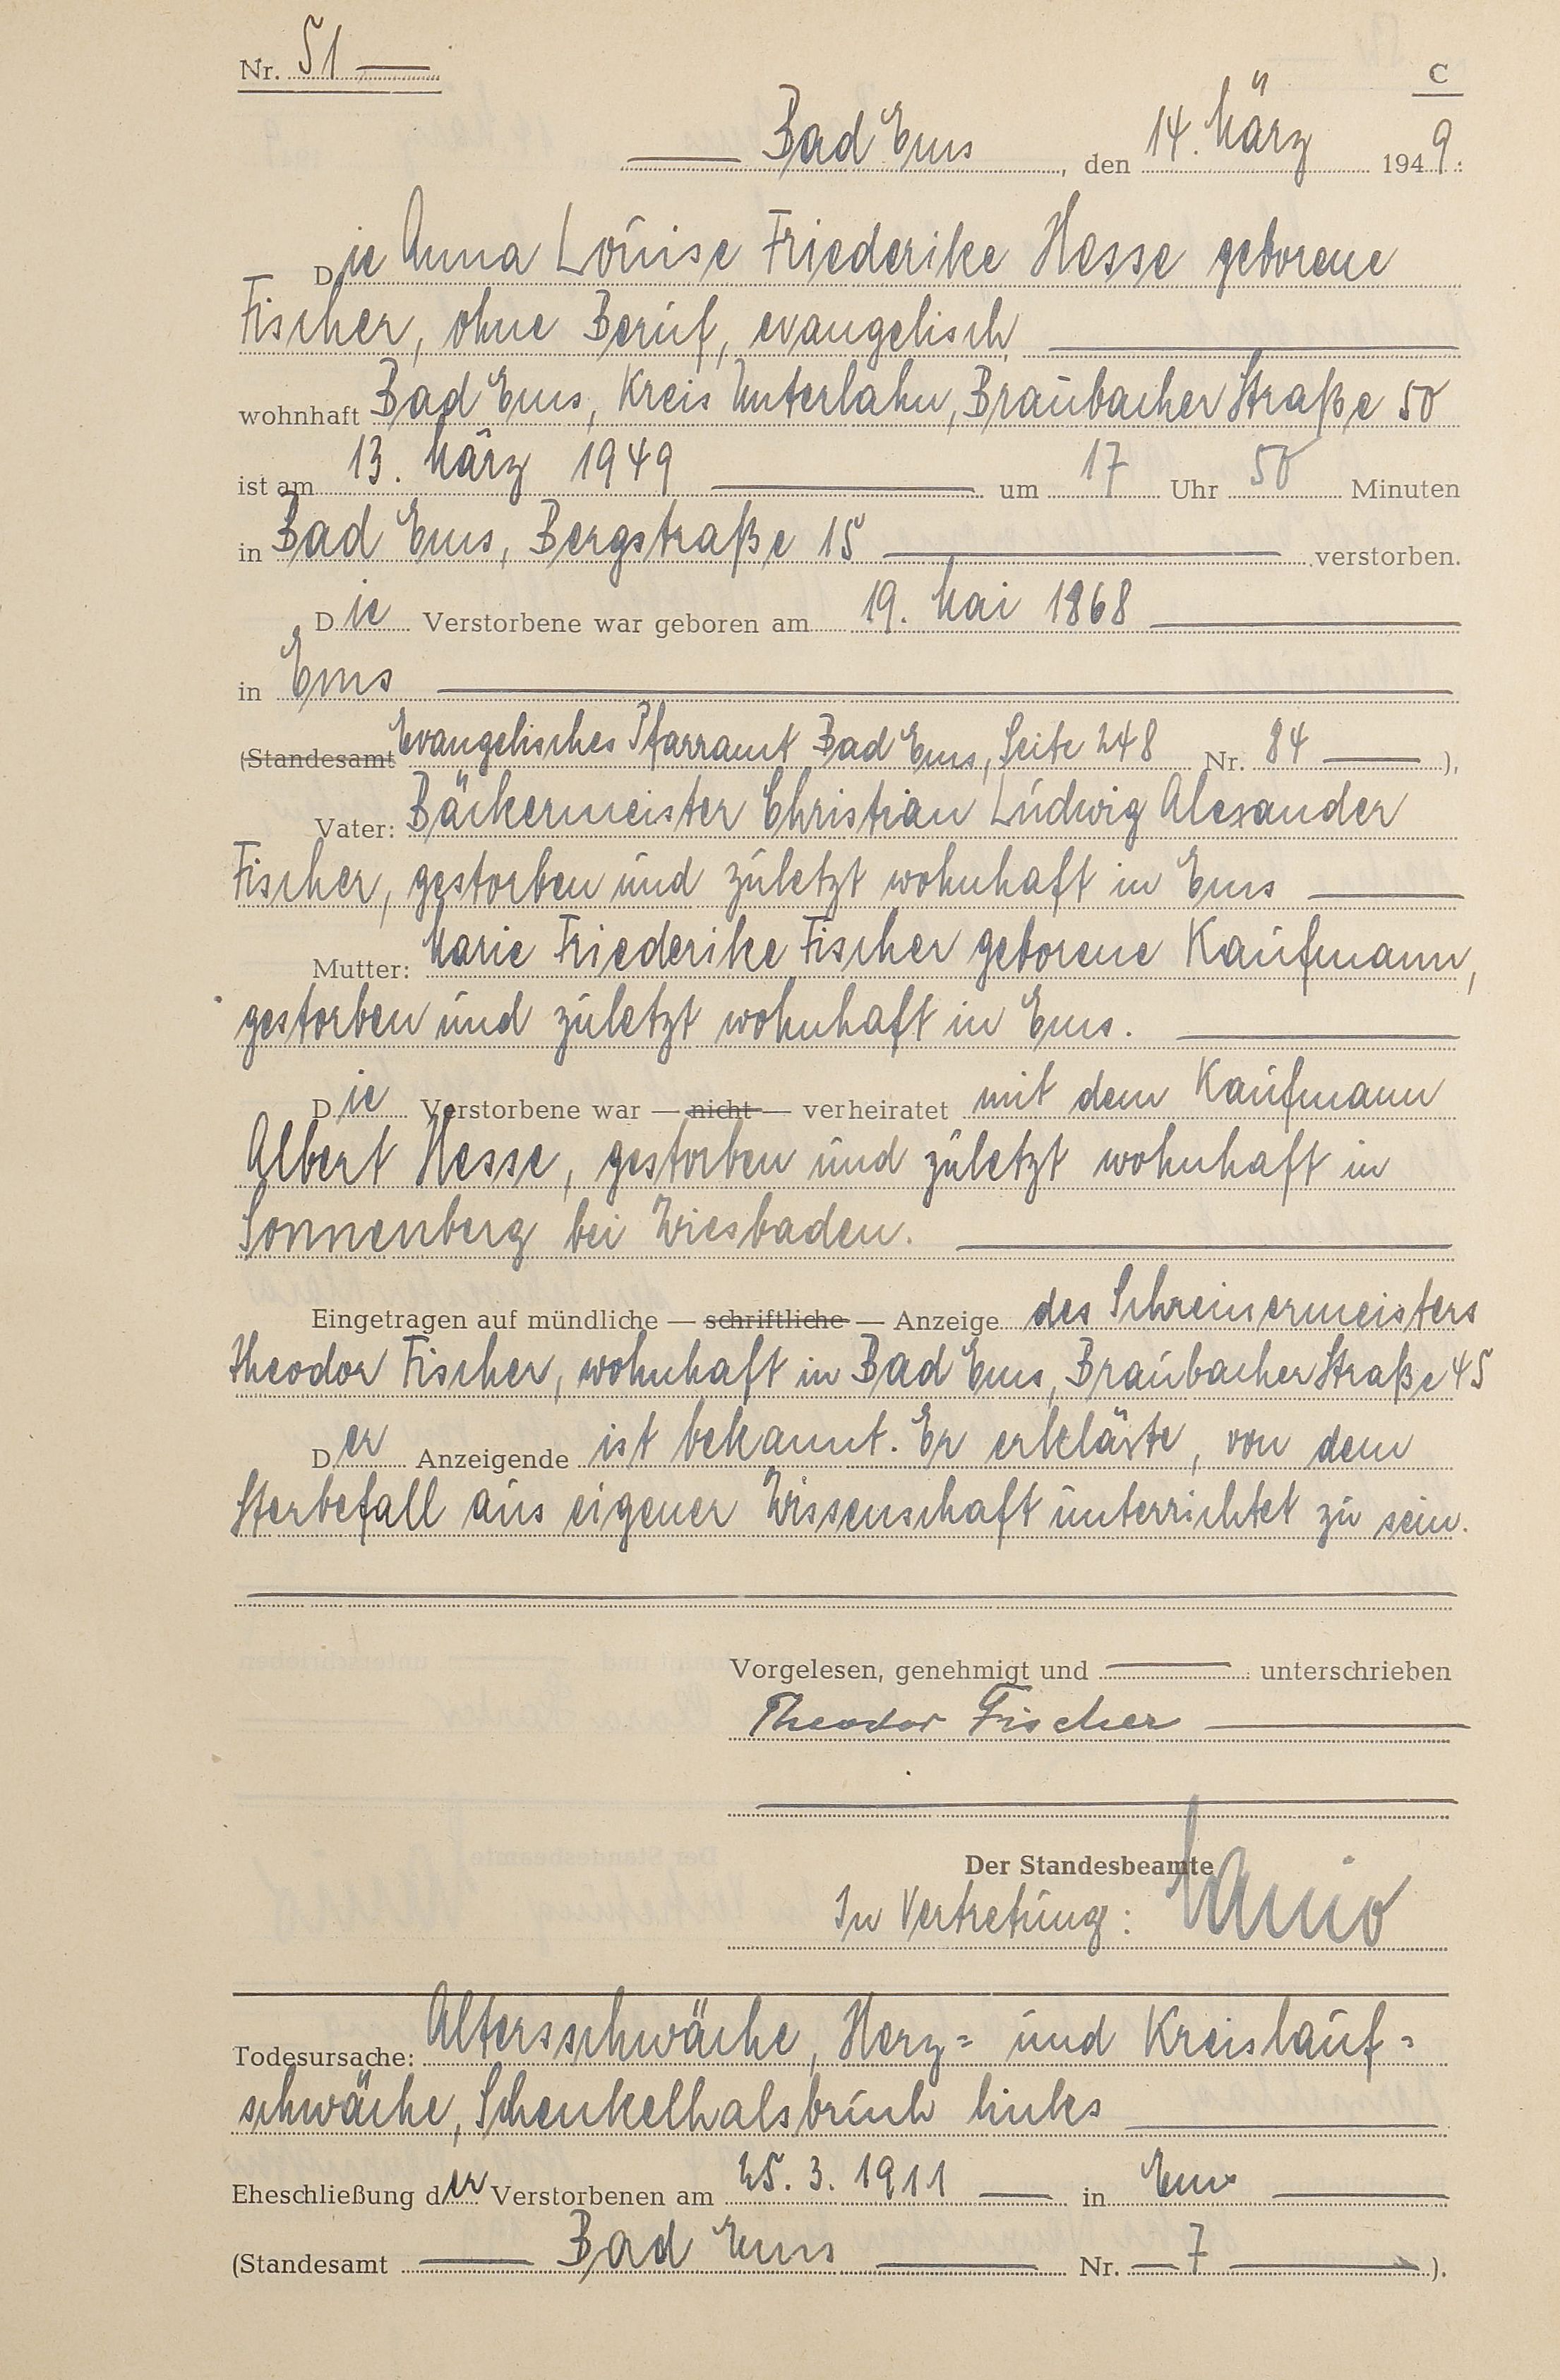 Nr. 51 C
Bad Ems, den 14. März 1949.
Die Anna Louise Friederike Hesse geborene
Fischer, ohne Beruf, evangelisch
wohnhaft Bad Ems, Kreis Unterlahn, Braubacher Straße 50
ist am 13. März 1949 um 17 Uhr 50 Minuten
in Bad Ems, Bergstraße 15 verstorben.
Die Verstorbene war geboren am 19. Mai 1868
in Ems
(Standesamt Evangelisches Pfarramt Bad Ems, Seite 248 Nr. 84 ),
Vater: Bäckermeister Christian Ludwig Alexander
Fischer, gestorben und zuletzt wohnhaft in Ems
Mutter: Marie Friederike Fischer geborene Kaufmann,
gestorben und zuletzt wohnhaft in Ems.
Die Verstorbene war — nicht — verheiratet mit dem Kaufmann
Albert Hesse, gestorben und zuletzt wohnhaft in
Sonnenberg bei Wiesbaden.
Eingetragen auf mündliche — schriftliche — Anzeige des Schreinermeisters
Theodor Fischer, wohnhaft in Bad Ems, Braubacher Straße 45
Der Anzeigende ist bekannt. Er erklärte, von dem
Sterbefall aus eigener Wissenschaft unterrichtet zu sein.
Vorgelesen, genehmigt und unterschrieben
Theodor Fischer
Der Standesbeamte
In Vertretung:
Todesursache: Altersschwäche, Herz- und Kreislauf-
schwäche, Schenkelhalsbruch links
Eheschließung der Verstorbenen am 25. 3. 1911 in Ems
(Standesamt Bad Ems Nr. 7 ).